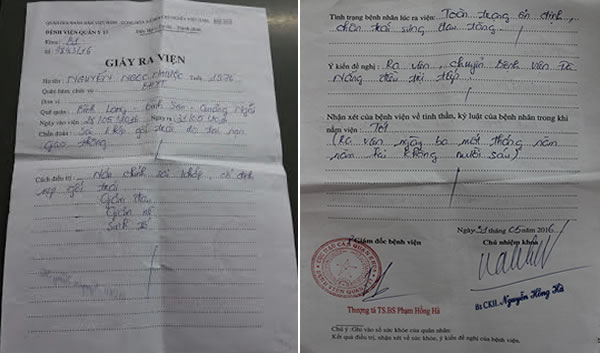 BỆNH VIỆN QUÂN Y 13
Khoa: B1
GIẤY RA VIỆN
Họ tên: NGUYỄN NGỌC Tuổi: 1976
Quân hàm, chức vụ
BHYT
Đơn vị
Quê quán: Bình Long - Bình Sơn - Quảng Ngãi
Ngày vào viện 28/05/2016 Ngày ra 31/05/2016
Chẩn đoán: Sai khớp gối trái do tai nạn
giao thông.
Cách điều trị: Nắn chỉnh sai khớp, cố định
nẹp gối trái
Giảm đau
Giảm nề
Sinh tố
Tình trạng bệnh nhân lúc ra viện: Toàn trạng ổn định,
chân trái sưng đau tăng.
Ý kiến đề nghị: Ra viện, chuyển Bệnh Viện Đà
Nẵng điều trị tiếp.
Nhận xét của bệnh viện về tinh thần, kỷ luật của bệnh nhân trong khi
nằm viện: Tốt
(Ra viện ngày ba mốt tháng năm
năm hai không mười sáu)
Ngày 31 tháng 05 năm 2016
Giám đốc bệnh viện
Chủ nhiệm khoa
Thượng tá TS.BS Phạm Hồng Hà
Bs CKII. Nguyễn Hồng Hà
Chú ý: Ghi vào sổ sức khỏe của quân nhân.
Kết quả điều trị, nhận xét về sức khỏe, ý kiến đề nghị của bệnh viện.